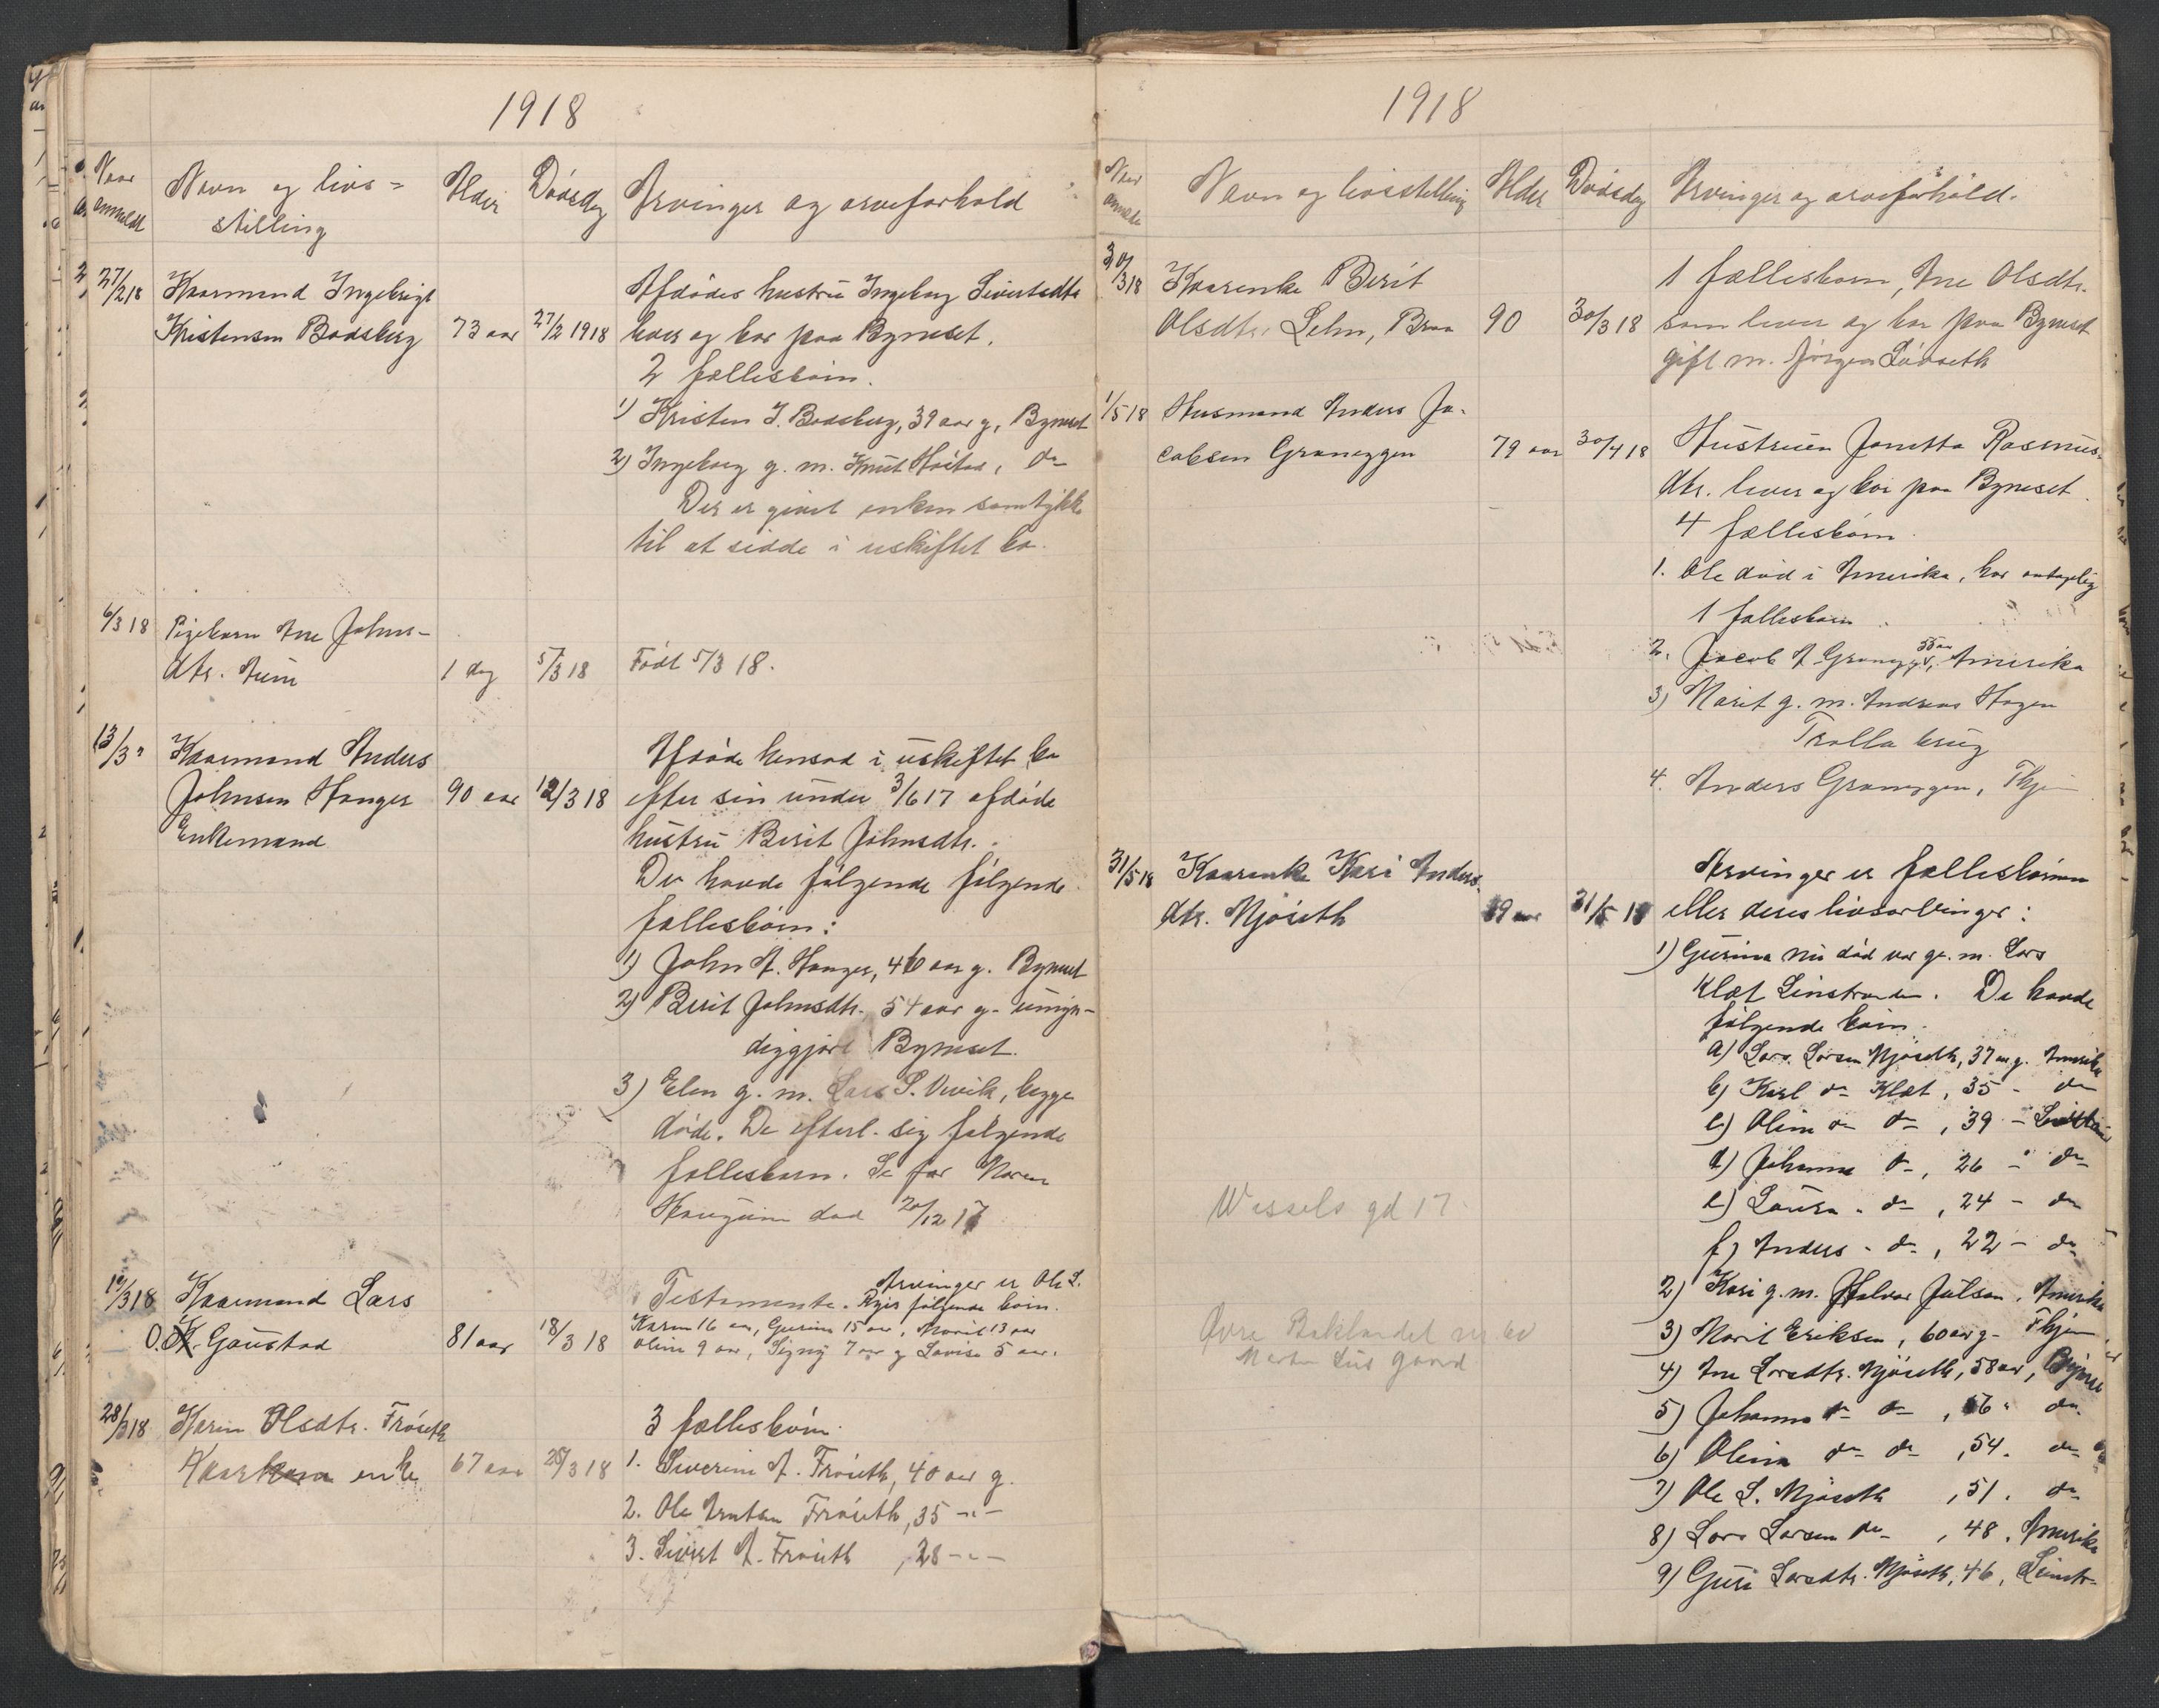 1918
Naar anmeldt
Navn og livs=
stilling
Alder
Dødsdag
Arvinger og arveforhold
27/2 18
Kaarmand Ingebrigt
Kristensen Bodsberg 73 aar 27/2 1918
Afdødes hustru Ingeborg Sivertsdtr
lever og bor paa Byneset.
2 fællesbørn.
1) Kristen I. Bodsberg, 39 aar g, Byneset
2) Ingeborg g. m. Knut Høitas, do
Der er givet enken samtykke
til at sidde i uskiftet bo.
6/3 18 Pigebarn Ane Johns-
dtr. Aune 1 dag 5/3 18 Født 5/3 18.
13/3 " Kaarmand Anders
Johnsen Hanger 90 aar 12/3 18
Enkemand
Afdøde hensad i uskiftet bo
efter sin under 3/6 17 afdøde
hustru Berit Johnsdtr.
De havde følgende følgende
fællesbørn:
1) John A. Hanger, 46 aar g. Byneset
2) Berit Johnsdtr. 54 aar g. umyn-
diggjort Byneset.
3) Elen g. m. Lars S. Vevik, begge
døde. De efterl. sig følgende
fællesbarn. Se før Maren
Haugum død 20/12 17
19/3 18 Kaarmand Lars
O. Gaustad 81 aar 18/3 18
Testamente. Arvinger er Ole L.
Ryes følgende børn.
Karen 16 aar, Gurine 15 aar, Marit 13 aar
Oline 9 aar, Signy 7 aar g Lovise 5 aar.
28/3 18 Karen Olsdtr. Frøseth
Kaarenke 67 aar 28/3 18
3 fællesbørn.
1. Siverine A. Frøseth, 40 aar g.
2. Ole Arntsen Frøseth, 35 -"-
3. Sivert A. Frøseth, 28 -"-
1918
Naar anmeldt
Navn og livsstilling
Alder
Dødsdag
Arvinger og arveforhold.
30/3 18 Kaarenke Berit
Olsdtr. Lehn, Braa 90 30/3 18
1 fællesbarn, Ane Olsdtr.
som lever og bor paa Byneset
gift m. Jørgen Løvseth
1/5 18 Husmand Anders Ja-
cobsen Graneggen 79 aar 30/4 18
Hustruen Jonetta Rasmus-
dtr. lever og bor paa Byneset.
4 fællesbørn.
1. Ole død i Amerika, har antagelig
1 fællesbarn
2. Jacob A. Graneggen, 55 aar, Amerika
3) Marit g. m. Andreas Hagen
Trolla brug
4. Anders Graneggen, Thjem
31/5 18 Kaarenke Kari Anders
dtr. Mjøseth 89 aar 31/5 18
Arvinger er fællesbørnene
eller deres livsarvinger:
1) Gurina nu død var g. m. Lars
Klæt Leinstranden. De havde
følgende børn.
a) Lars Larsen Mjøseth, 37 aar g. Amerika
b) Karl do Klæt, 35 - do
c) Oline do do, 39 -
d) Johanna do, 26 - do
e) Laura - do, 24 - do
f) Anders - do, 22 - do
2) Kari g. m. Halvor Julson, Amerika
3) Marit Eriksen, 60 aar g. Thjem
4) Ane Larsdtr. Mjøseth, 58 aar, Byneset
5) Johanna do do, 56 " do.
6) Olina do do, 54. do
7) Ole L. Mjøseth, 51. do
8) Lars Larsen do, 48. Amerika
9) Guri Larsdtr. Mjøseth, 46, Leinstr.
Wessels gd 17.
Øvre Baklandet nr 60
gaard